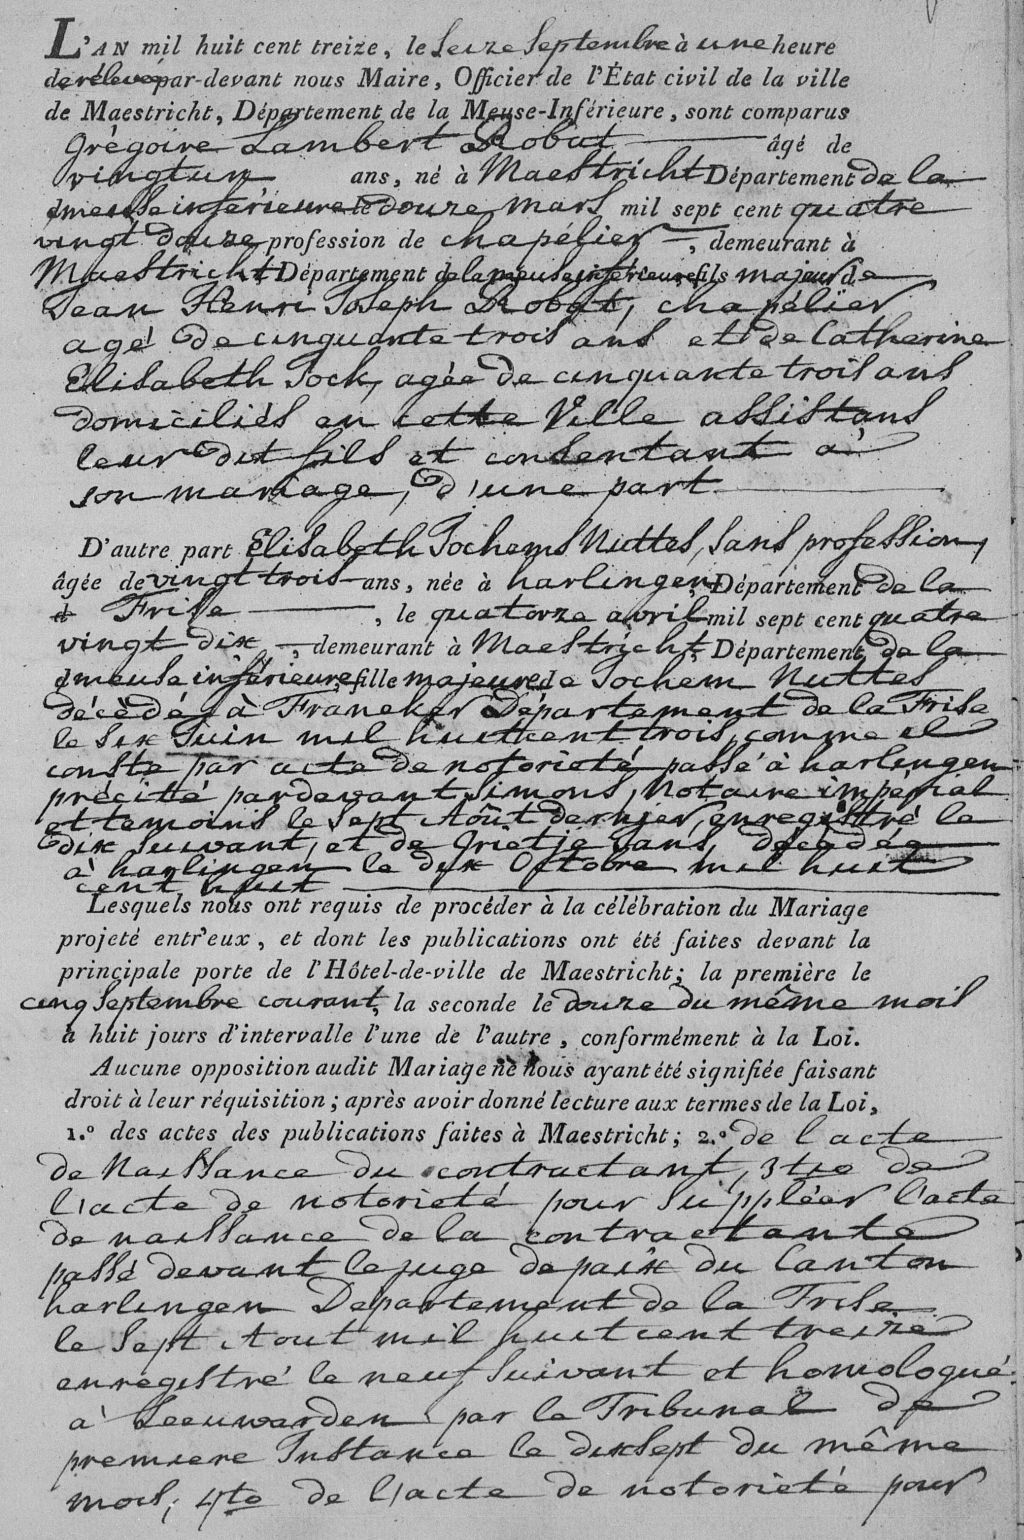 L'AN mil huit cent treize, le Seize Septembre à une heure
de rélevée par-devant nous Maire, Officier de l'État civil de la ville
de Maestricht, Département de la Meuse-Inférieure, sont comparus
Grégoire Lambert Robat âgé de
vingtun ans, né à Maestricht Département de la
meuse inférieure le douze mars mil sept cent quatre
vingt douze profession de chapélier, demeurant à
Maestricht Département de la meuse inférieure fils majeur de
Jean Henri Joseph Robat, chapélier
agé de cinquante trois ans et de Catherine
Elisabeth Jock, agée de cinquante trois ans
domiciliés en cette Ville assistans
leur dit fils et consentant à
son mariage, d'une part
D'autre part Elisabeth Jochems Nuttes, sans profession,
âgée de vingt trois ans, née à harlingen, Département de la
Frise, le quatorze avril mil sept cent quatre
vingt dix, demeurant à Maestricht, Département de la
meuse inférieure, fille majeure de Jochem Nuttes
décédé à Franeker Département de la Frise
le six Juin mil huitcent trois, comme il
conste par acte de notorieté passé à harlingen
précitté pardevant Simons, Notaire impérial
et temoins le sept Aoùt dernier, enregistré le
dix suivant, et de Grietje Jans, décédée
à harlingen le dix Octobre mil huit
cent huit
Lesquels nous ont requis de procéder à la célébration du Mariage
projeté entr'eux, et dont les publications ont été faites devant la
principale porte de l'Hôtel-de-ville de Maestricht; la première le
cinq Septembre courant, la seconde le douze du même mois
à huit jours d'intervalle l'une de l'autre, conformément à la Loi.
Aucune opposition audit Mariage ne nous ayant été signifiée faisant
droit à leur réquisition; après avoir donné lecture aux termes de la Loi,
1.º des actes des publications faites à Maestricht; 2.º de l'acte
de Naissance du contractant, 3tio de
l'acte de notorieté pour suppléer l'acte
de naissance de la contractante
passé devant le juge de paix du Canton
harlingen Département de la Frise
le Sept Aout mil huitcent treize
enrégistré le neuf suivant et homologué
à Leeuwarden par le Tribunal de
premiere Instance le dixsept du même
mois, 4to de l'acte de notorieté pour